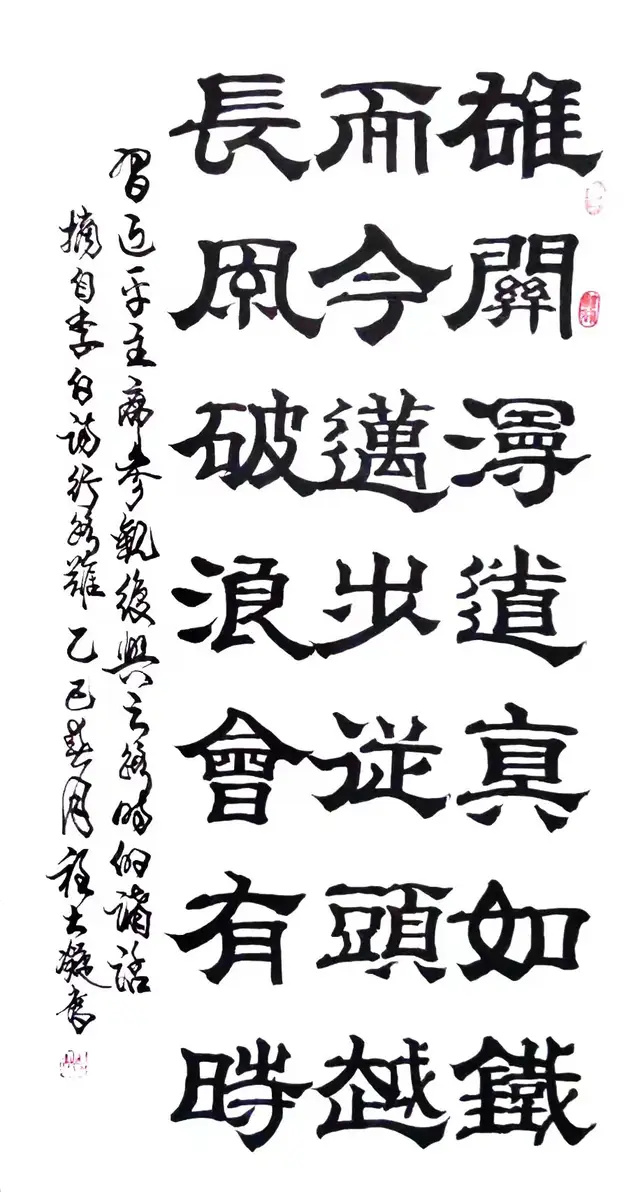 雄關漫道真如鐵
而今邁步從頭越
長風破浪會有時
習近平主席參觀復興之路時的講話
摘自李白詩行路難 乙巳春月 書